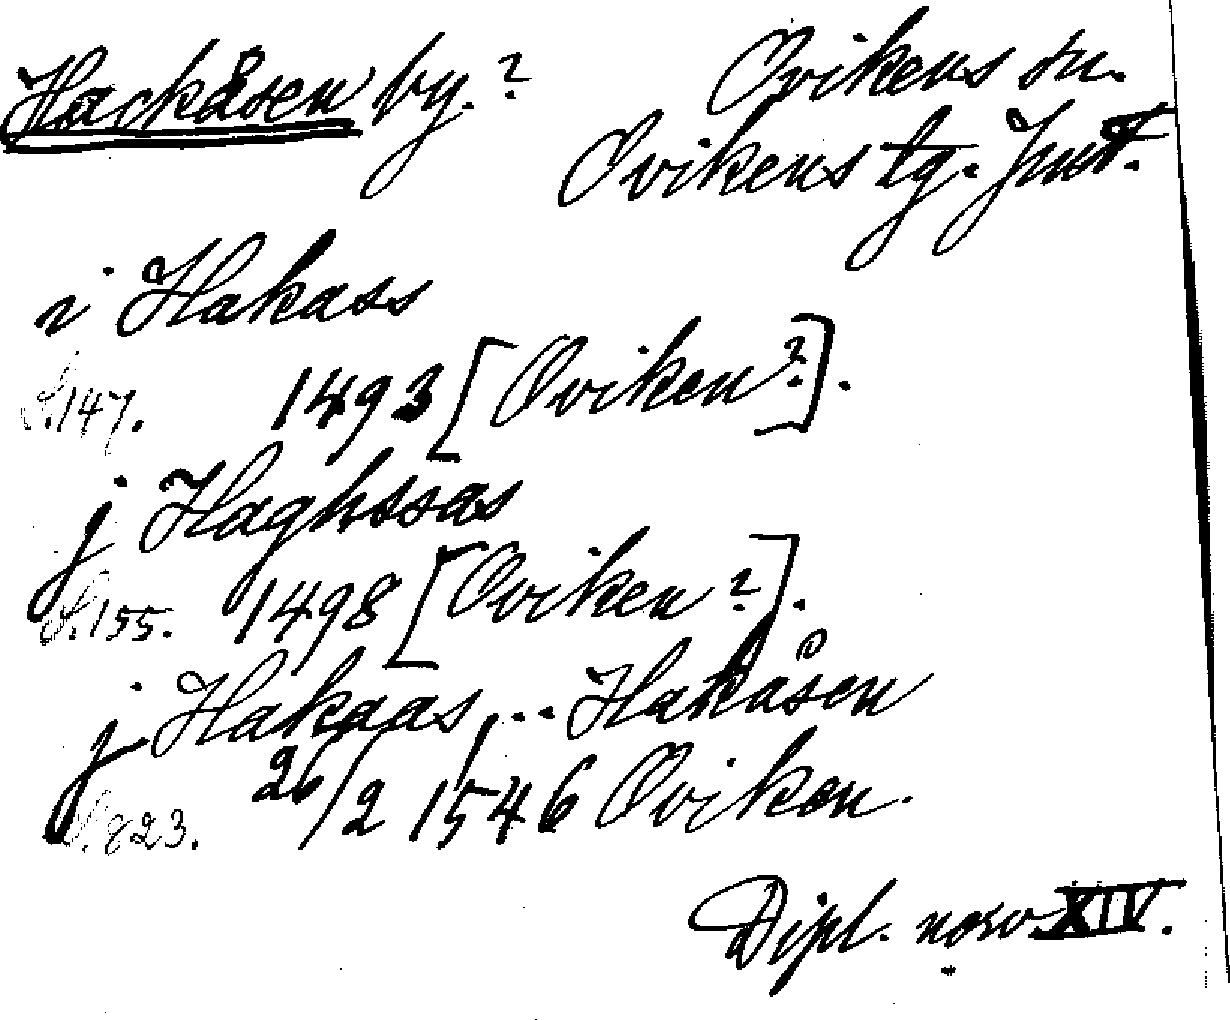 Hackåsen by.? Ovikens sn.
Ovikens tg. Jmt.
i Hakass
S.147. 1493 [Oviken?].
j Haghssas
S.155. 1498 [Oviken?].
j Hakaas, ... Hakåsen
S.823. 26/2 1546 Oviken.
Dipl. norv. XIV.